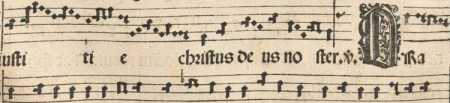 iusti ti e christus de us no ster. v. ORa